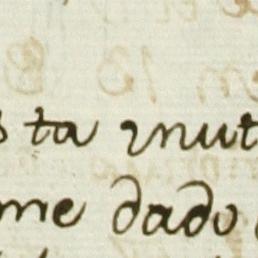 s ta inut
me dado